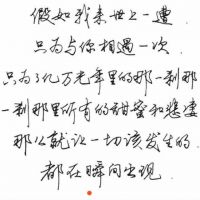 假如我来世上一遭
只为与你相遇一次
只为了亿万光年里的那一刹那
一刹那里所有的甜蜜和悲凄
那么就让一切该发生的
都在瞬间出现